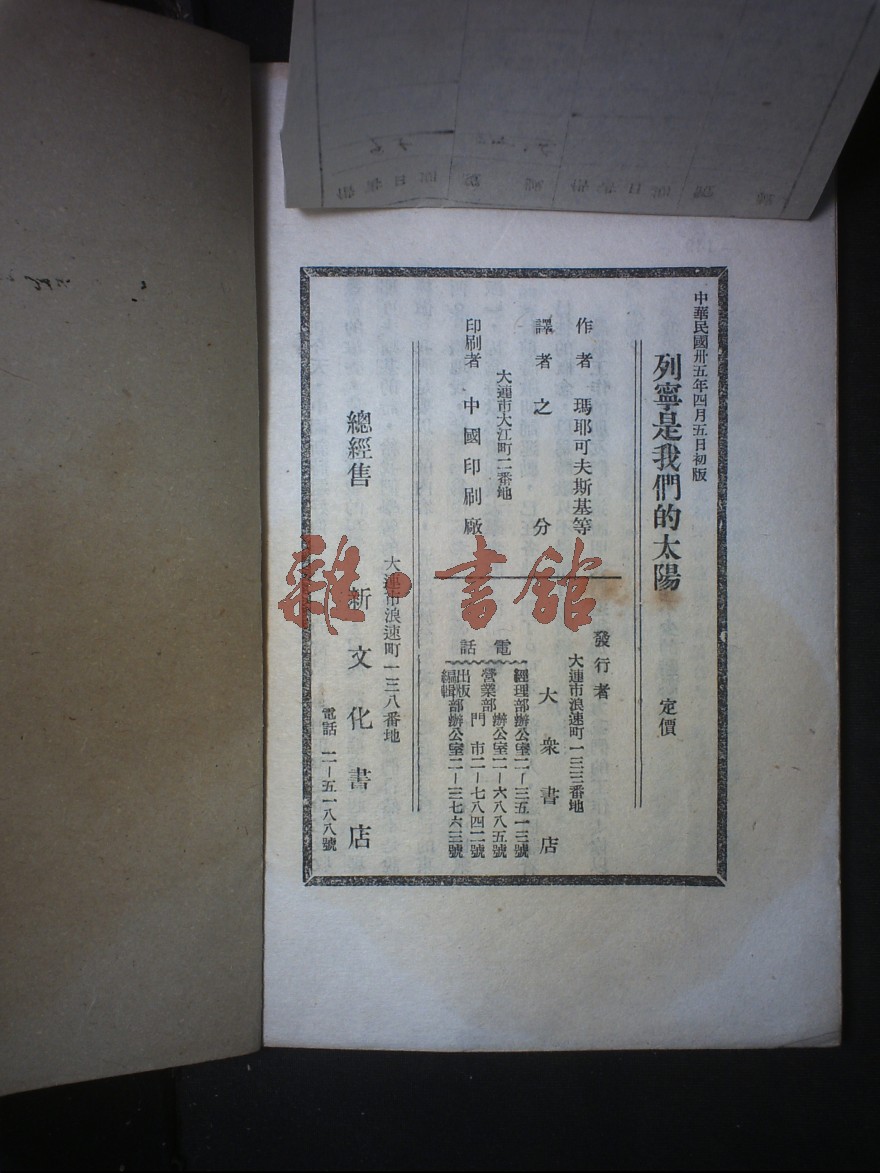 中華民國卅五年四月五日初版
列寧是我們的太陽 定價
作者 瑪耶可夫斯基等
譯者 之分
大連市大江町二番地
印刷者 中國印刷廠
發行者
大連市浪速町一三三番地
大衆書店
電話
經理部辦公室二－三五一三號
營業部 辦公室二－六八八五號
門市二－七八四二號
出版部
編輯部辦公室二－三七六三號
大連市浪速町一三八番地
總經售 新文化書店
電話 二－五一八八號
雜·書館